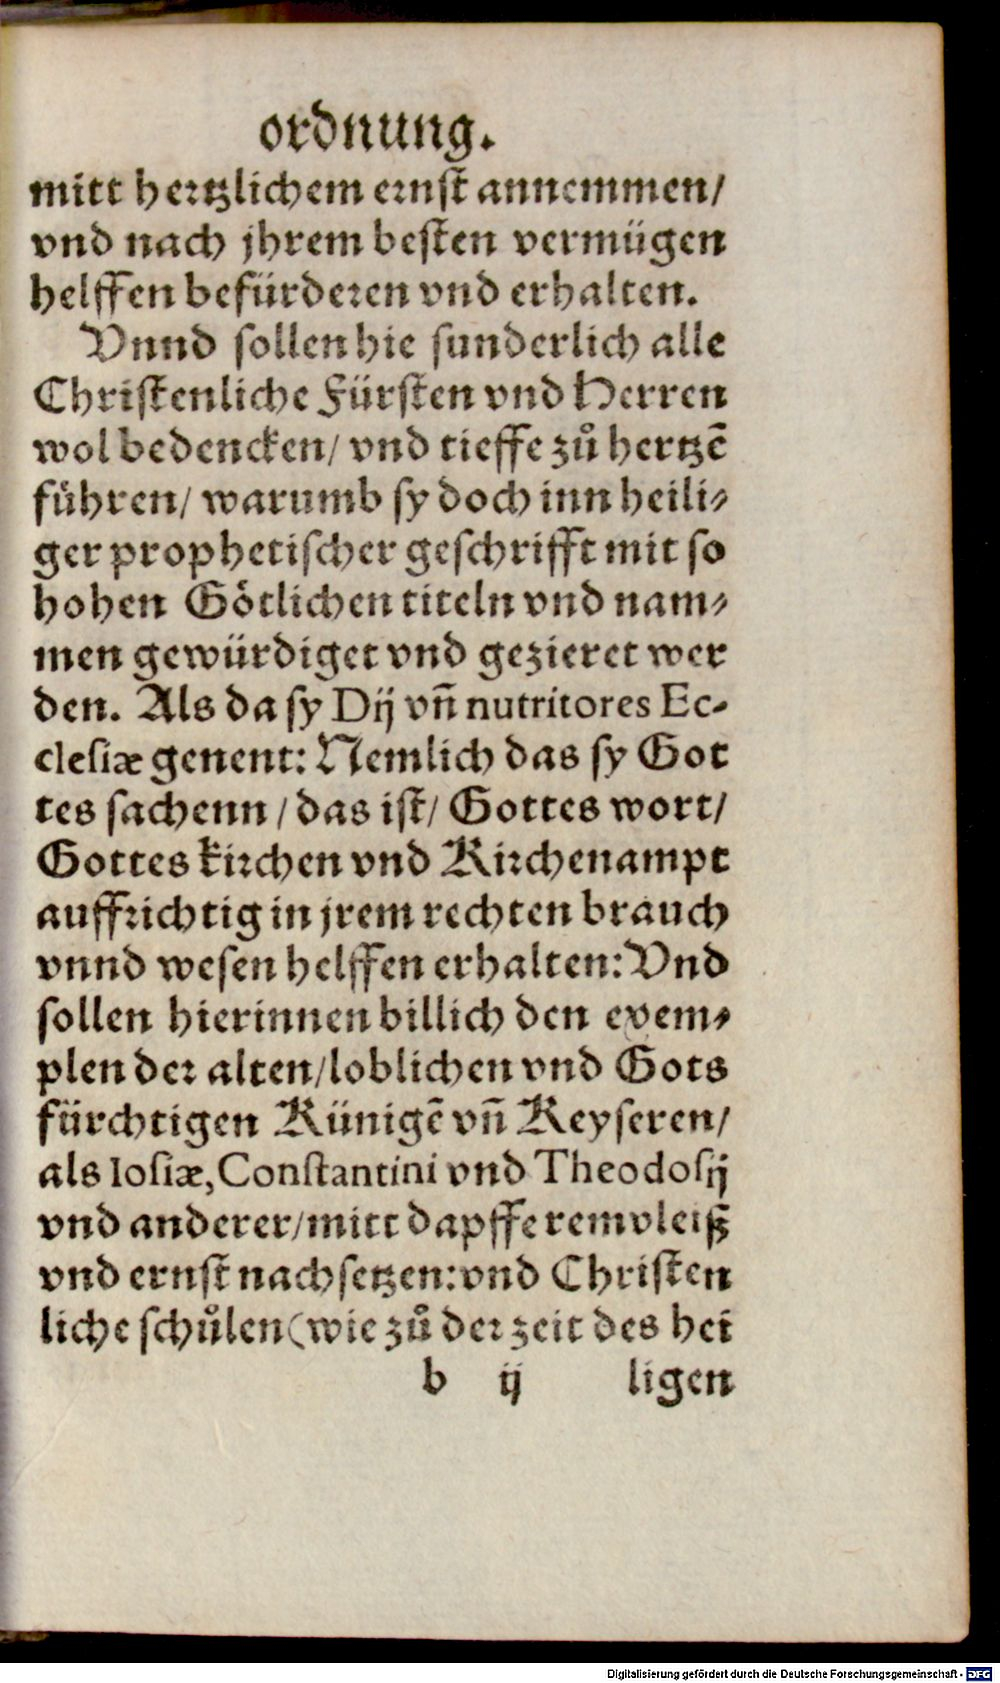 ordnung.
mitt hertzlichem ernst annemmen/
vnd nach jhrem besten vermügen
helffen befürderen vnd erhalten.
Vnnd sollen hie sunderlich alle
Christenliche Fürsten vnd Herren
wol bedencken/ vnd tieffe zů hertzē
führen/ warumb sy doch inn heili⸗
ger prophetischer geschrifft mit so
hohen Götlichen titeln vnd nam⸗
men gewürdiget vnd gezieret wer
den. Als da sy Dij vñ nutritores Ec-
clesiæ genent: Nemlich das sy Got
tes sachenn / das ist/ Gottes wort/
Gottes kirchen vnd Kirchenampt
auffrichtig in jrem rechten brauch
vnnd wesen helffen erhalten: Vnd
sollen hierinnen billich den exem⸗
plen der alten/ loblichen vnd Gots
fürchtigen Künigē vñ Keyseren/
als Iosiæ, Constantini vnd Theodosij
vnd anderer/ mitt dapfferem vleiß
vnd ernst nachsetzen: vnd Christen
liche schůlen (wie zů der zeit des hei
b ij ligen
Digitalisierung gefördert durch die Deutsche Forschungsgemeinschaft - DFG